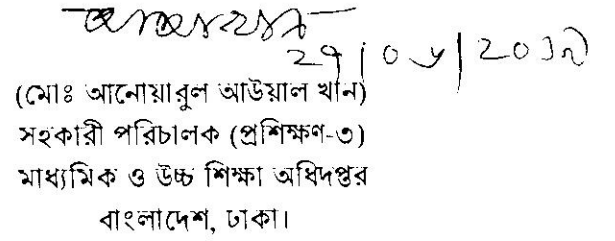 ২৭|০৮|২০১৯
(মোঃ আনোয়ারুল আউয়াল খান)
সহকারী পরিচালক (প্রশিক্ষণ-৩)
মাধ্যমিক ও উচ্চ শিক্ষা অধিদপ্তর
বাংলাদেশ, ঢাকা।